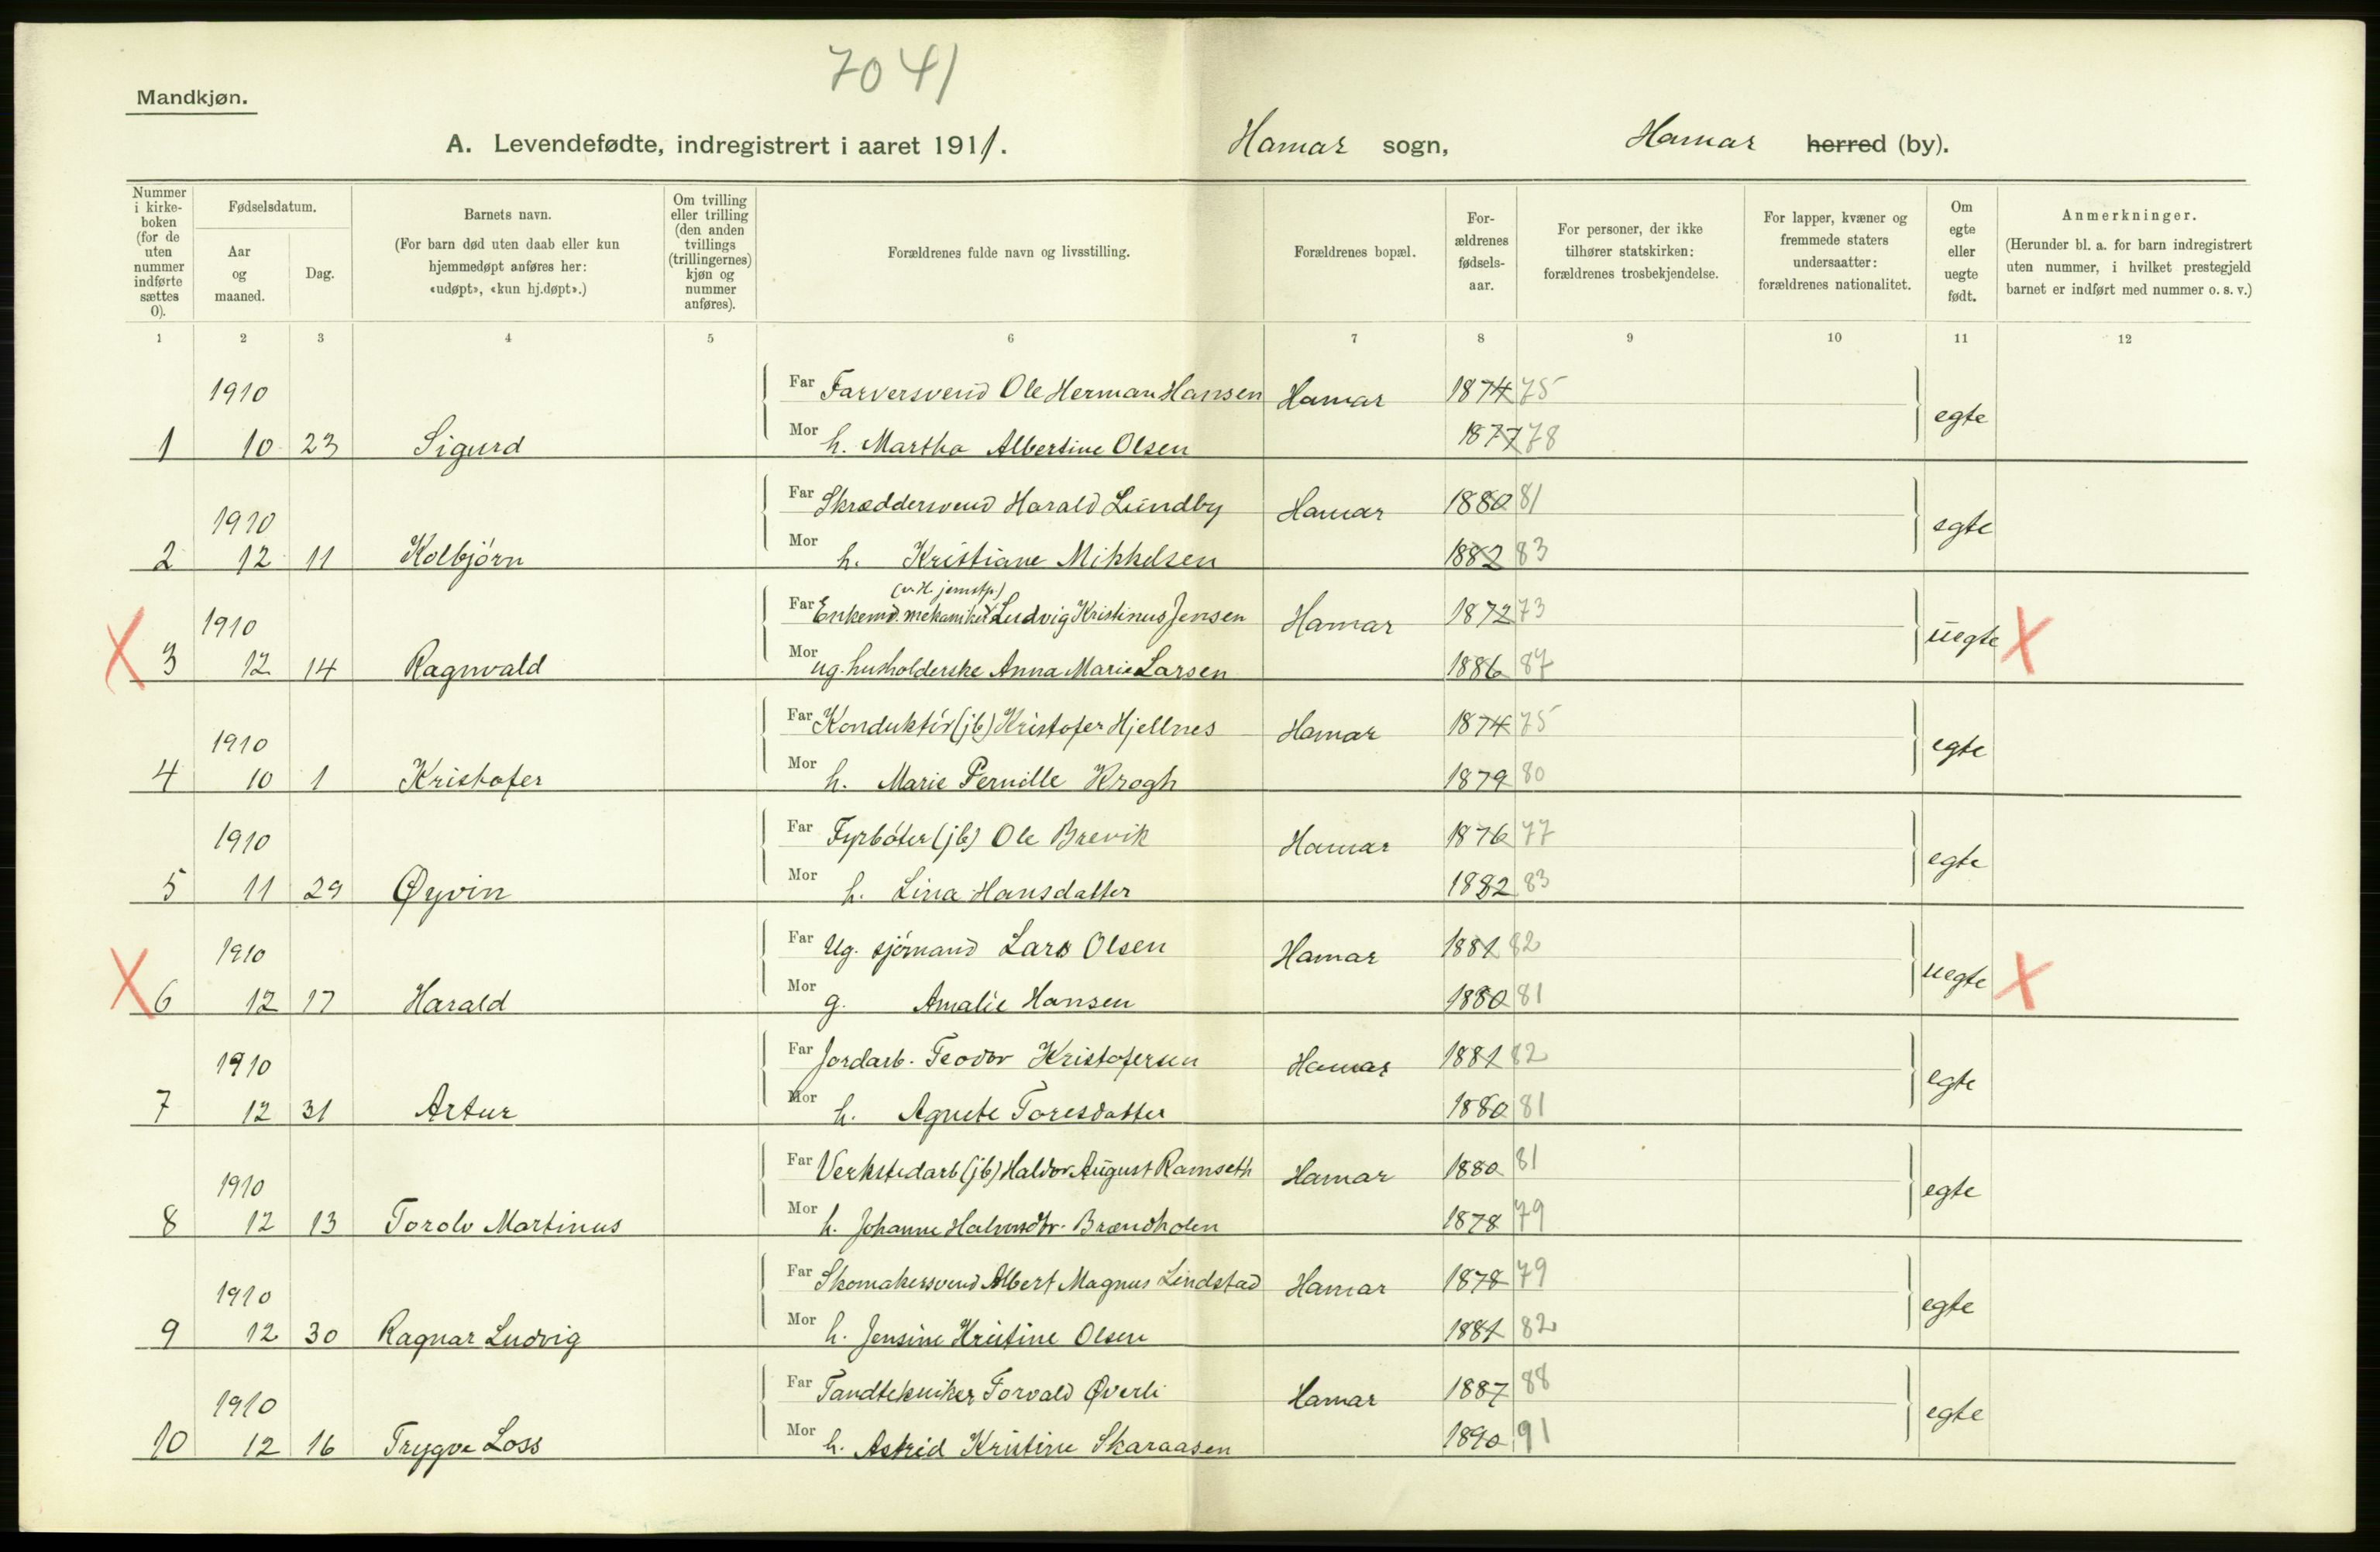 7041
Mandkjøn.
A. Levendefødte, indregistrert i aaret 1911.
Hamar sogn, Hamar herred (by).
Nummer i kirke-boken (for de uten nummer indførte sættes 0).
Fødselsdatum.
Aar og maaned.
Dag.
Barnets navn.
(For barn død uten daab eller kun hjemmedøpt anføres her: «udøpt», «kun hj.døpt».)
Om tvilling eller trilling (den anden tvillings (trillingernes) kjøn og nummer anføres).
Forældrenes fulde navn og livsstilling.
Forældrenes bopæl.
For-ældrenes fødsels-aar.
For personer, der ikke tilhører statskirken: forældrenes trosbekjendelse.
For lapper, kvæner og fremmede staters undersaatter: forældrenes nationalitet.
Om egte eller uegte født.
Anmerkninger.
(Herunder bl. a. for barn indregistrert uten nummer, i hvilket prestegjeld barnet er indført med nummer o. s. v.)
1 2 3 4 5 6 7 8 9 10 11 12
1910 Far Farversvend Ole Herman Hansen Hamar 1874 75
1 10 23 Sigurd Mor h. Martha Albertine Olsen 1877 78 egte
1910 Far Skræddersvend Harald Lundby Hamar 1880 81
2 12 11 Kolbjørn Mor h. Kristiane Mikkelsen 1882 83 egte
1910 Far Enkemd. mekaniker Ludvig Kristinus Jensen Hamar 1872 73
X 3 12 14 Ragnvald Mor ug. husholderske Anna Marie Larsen 1886 87 uegte X
1910 Far Konduktør (jb) Kristofer Hjellnes Hamar 1874 75
4 10 1 Kristofer Mor h. Marie Pernille Krogh 1879 80 egte
1910 Far Fyrbøter (jb) Ole Brevik Hamar 1876 77
5 11 29 Øyvin Mor h. Lina Hansdatter 1882 83 egte
1910 Far Ug. sjømand Lars Olsen Hamar 1881 82
X 6 12 17 Harald Mor g. Amalie Hansen 1880 81 uegte X
1910 Far Jordarb. Teodor Kristofersen Hamar 1881 82
7 12 31 Artur Mor h. Agnete Toresdatter 1880 81 egte
1910 Far Verkstedarb (jb) Haldor August Ramseth Hamar 1880 81
8 12 13 Torolv Martinus Mor h. Johanne Halvorsdtr. Brændholen 1878 79 egte
1910 Far Skomakersvend Albert Magnus Lindstad Hamar 1878 79
9 12 30 Ragnar Ludvig Mor h. Jensine Kristine Olsen 1881 82 egte
1910 Far Tandtekniker Torvald Øverli Hamar 1887 88
10 12 16 Trygve Loss Mor h. Astrid Kristine Skaraasen 1890 91 egte